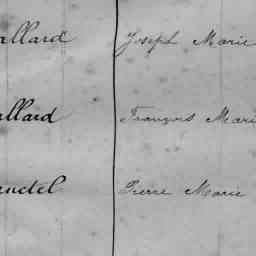 allard Joseph Marie
allard François Mari
Pierre Marie